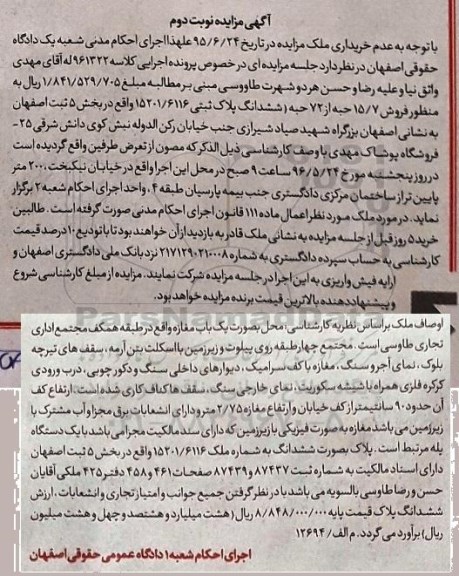 آگهی مزایده نوبت دوم
با توجه به عدم خریداری ملک مزایده در تاریخ ۹۵/۶/۲۴ علهذا اجرای احکام مدنی شعبه یک دادگاه
حقوقی اصفهان در نظر دارد جلسه مزایده ای در خصوص پرونده اجرایی کلاسه ۹۶۱۳۲۲ له آقای مهدی
واثق نیا و علیه رضا و حسن هر دو شهرت طاووسی مبنی بر مطالبه مبلغ ۱/۸۴۱/۵۲۹/۷۰۵ ریال به
منظور فروش ۱۵/۷ حبه از ۷۲ حبه (ششدانگ پلاک ثبتی ۱۵۲۰۱/۶۱۱۶ واقع در بخش ۵ ثبت اصفهان
به نشانی اصفهان بزرگراه شهید صیاد شیرازی جنب خیابان رکن الدوله نبش کوی دانش شرقی ۲۵-
فروشگاه پوشاک مهدی با وصف کارشناسی ذیل الذکر که مصون از تعرض طرفین واقع گردیده است
در روز پنجشنبه مورخ ۹۶/۵/۲۴ ساعت ۹ صبح در محل این اجرا واقع در خیابان نیکبخت، ۲۰۰ متر
پایین تر از ساختمان مرکزی دادگستری جنب بیمه پارسیان طبقه ۴، واحد اجرای احکام شعبه ۲ برگزار
نماید. در مورد ملک مورد نظر اعمال ماده ۱۱۱ قانون اجرای احکام مدنی صورت گرفته است. طالبین
خرید ۵ روز قبل از جلسه مزایده به نشانی ملک قادر به بازدید از آن خواهند بود تا با تودیع ۱۰ درصد قیمت
کارشناسی به حساب سپرده دادگستری به شماره ۲۱۷۱۲۹۰۲۱۰۰۰۸ نزد بانک ملی دادگستری اصفهان و
ارایه فیش واریزی به این اجرا در جلسه مزایده شرکت نمایند. مزایده از مبلغ کارشناسی شروع
و پیشنهاد دهنده بالاترین قیمت برنده مزایده خواهد بود.
اوصاف ملک بر اساس نظریه کارشناسی: محل بصورت یک باب مغازه واقع در طبقه همکف مجتمع اداری
تجاری طاوسی است. مجتمع چهار طبقه روی پیلوت و زیرزمین با اسکلت بتن آرمه، سقف های تیرچه
بلوک، نمای آجر و سنگ، مغازه با کف سرامیک، دیوارهای داخلی سنگ و دکور چوبی، درب ورودی
کرکره فلزی همراه با شیشه سکوریت، نمای خارجی سنگ، سقف ها کناف کاری شده است. ارتفاع کف
آن حدود ۹۰ سانتیمتر از کف خیابان و ارتفاع مغازه ۲/۷۵ متر و دارای انشعابات برق مجزا و آب مشترک با
زیرزمین می باشد مغازه به صورت فیزیکی با زیرزمین که دارای سند مالکیت مجزا می باشد با یک دستگاه
پله مرتبط است. پلاک بصورت ششدانگ به شماره ملک ۱۵۲۰۱/۶۱۱۶ واقع در بخش ۵ ثبت اصفهان
دارای اسناد مالکیت به شماره ثبت ۸۷۴۳۷ و ۸۷۴۳۹ صفحات ۴۶۱ و ۴۵۸ دفتر ۴۲۵ ملکی آقایان
حسن و رضا طاوسی بالسویه می باشد با در نظر گرفتن جمیع جوانب و امتیاز تجاری و انشعابات، ارزش
ششدانگ پلاک قیمت پایه ۸/۸۴۸/۰۰۰/۰۰۰ ریال (هشت میلیارد و هشتصد و چهل و هشت میلیون
ریال) برآورد می گردد. م الف/ ۱۲۶۹۴
اجرای احکام شعبه ۱ دادگاه عمومی حقوقی اصفهان